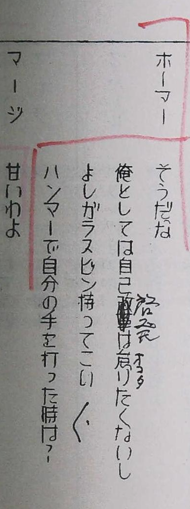 ホーマー　そうだな
俺としては自己啓発は怠りたくないし
よしガラスビン持ってこい
ハンマーで自分の手を打った時は?
マージ　甘いわよ